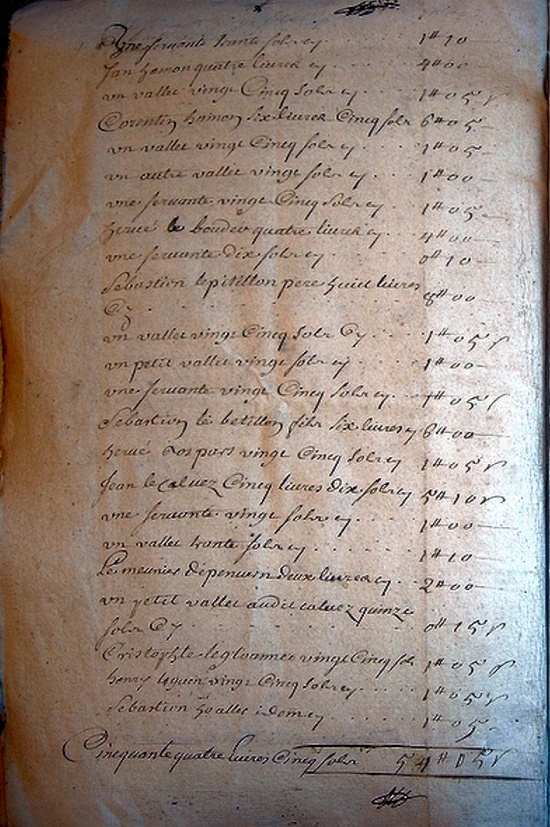 Une servante trante solz cy . . . 1# 10
Jan hemon quatre livres cy . . . 4# 00
un vallet vingt Cincq solz cy . . . 1# 05
Corentin hemon six livres Cincq solz 6# 05
un vallet vingt Cincq solz cy . . . 1# 05
un autre vallet vingt solz cy . . . 1# 00
une servante vingt Cincq solz cy . . 1# 05
hervé le boudeu quatre livres cy . . 4# 00
une servante dix solz cy . . . 0# 10
Sebastien le petillon pere huict livres
Cy . . . 8# 00
un vallet vingt Cincq solz Cy . . . 1# 05
un petit vallet vingt solz cy . . . 1# 00
une servante vingt Cincq solz cy . . 1# 05
Sebastien le betillon filz six livres cy 6# 00
hervé vingt Cincq solz cy 1# 05
Jean le Caluez Cincq livres dix solz cy 5# 10
une servante vingt solz cy . . . 1# 00
un vallet trante solz cy . . . 1# 10
Le meunier de deux livres cy . . 2# 00
un petit vallet audit caluez quinze
solz Cy . . . 0# 15
Cristophle le gloannec vingt Cincq solz 1# 05
henry vingt Cincq solz cy . . 1# 05
Sebastien idem cy . . . 1# 05
Cincquante quatre livres Cincq solz 54# 05